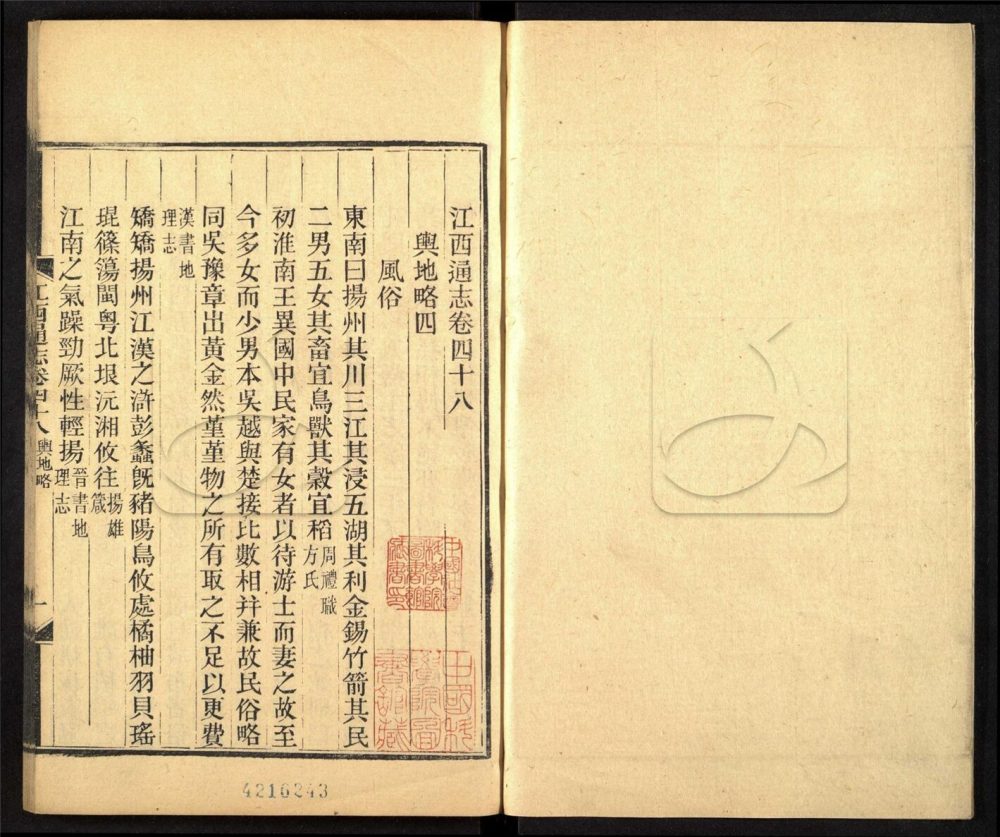 江西通志卷四十八
輿地略四
風俗
東南曰揚州其川三江其浸五湖其利金錫竹箭其民
二男五女其畜宜鳥獸其穀宜稻周禮職方氏
初淮南王異國中民家有女者以待游士而妻之故至
今多女而少男本吳越與楚接比數相并兼故民俗略
同吳豫章出黃金然堇堇物之所有取之不足以更費
漢書地理志
矯矯揚州江漢之滸彭蠡旣豬陽鳥攸處橘柚羽貝瑤
琨篠簜閩粤北垠沅湘攸往揚雄箴
江南之氣躁勁厥性輕揚晉書地理志
江西通志卷四十八 輿地略 一
中國科學院圖書館藏
4216243